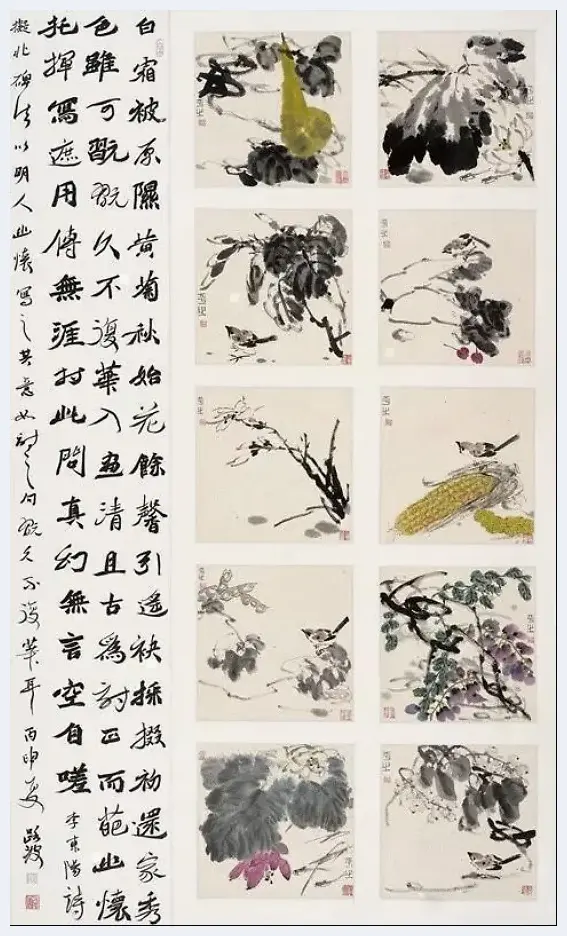 白霜被原隰黄菊秋始花餘馨引遥袂採掇初還家秀
色雖可翫翫久不復華入畫清且古爲詩正而葩幽懷
托揮寫遮用傳無涯对此問真幻無言空自嗟 李東陽詩
擬北碑法以明人幽懷寫之其意如詩之句翫久不復華耳 丙申夏